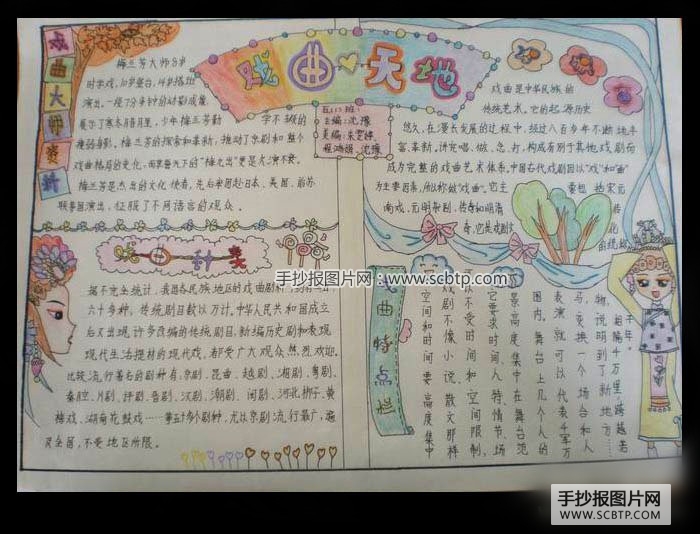 戏曲天地
五(1)班:
主编:沈豫
戏曲大师资料
梅兰芳大师8岁
时学戏,10岁登台,14岁搭班
演出,一段7分多钟的
展示了寒冬腊月里,少年梅兰芳勤
学不辍的
梅兰芳的探索和革新,推动了京剧和整个
戏曲格局的变化,
梅兰芳是杰出的文化使者,先后率团赴日本、美国、前苏
联等国演出,征服了不同语言的观众。
戏曲是中华民族的
传统艺术,它的起源历史
悠久,在漫长发展的过程中,经过八百多年不断地丰
富、革新,讲究唱、做、念、打,构成有别于其他戏剧而
成为完整的戏曲艺术体系,中国古代戏剧因以“戏”和“曲”
为主要因素,所以称做“戏曲”。它主
要包括宋元
南戏、元明杂剧、传奇和明清
戏曲种类
据不完全统计,我国各民族地区的戏曲剧种,
六十多种,传统剧目数以万计。中华人民共和国成立
后又出现许多改编的传统剧目,新编历史剧和表现
现代生活题材的现代戏,都受广大观众热烈欢迎。
比较流行著名的剧种有:京剧、昆曲、越剧、湘剧、粤剧、
秦腔、川剧、评剧、晋剧、汉剧、潮剧、闽剧、河北梆子、黄
梅戏、湖南花鼓戏……等五十多个剧种,尤以京剧流行最广,遍
及全国,不受地区所限。
戏曲特点栏
空间和时间要高度集中
戏剧不像小说、散文那样
可以不受时间和空间限制,
它要求时间、人物、情节、场
景高度集中在舞台范
围内。舞台上几个人的
表演就可以代表千军万
马,变换一个场合和人
物,说明到了新地方
相隔千万里,跨越若
干年
手抄报图片网:www.scbtp.com
手抄报图片网
WWW.SCBTP.COM